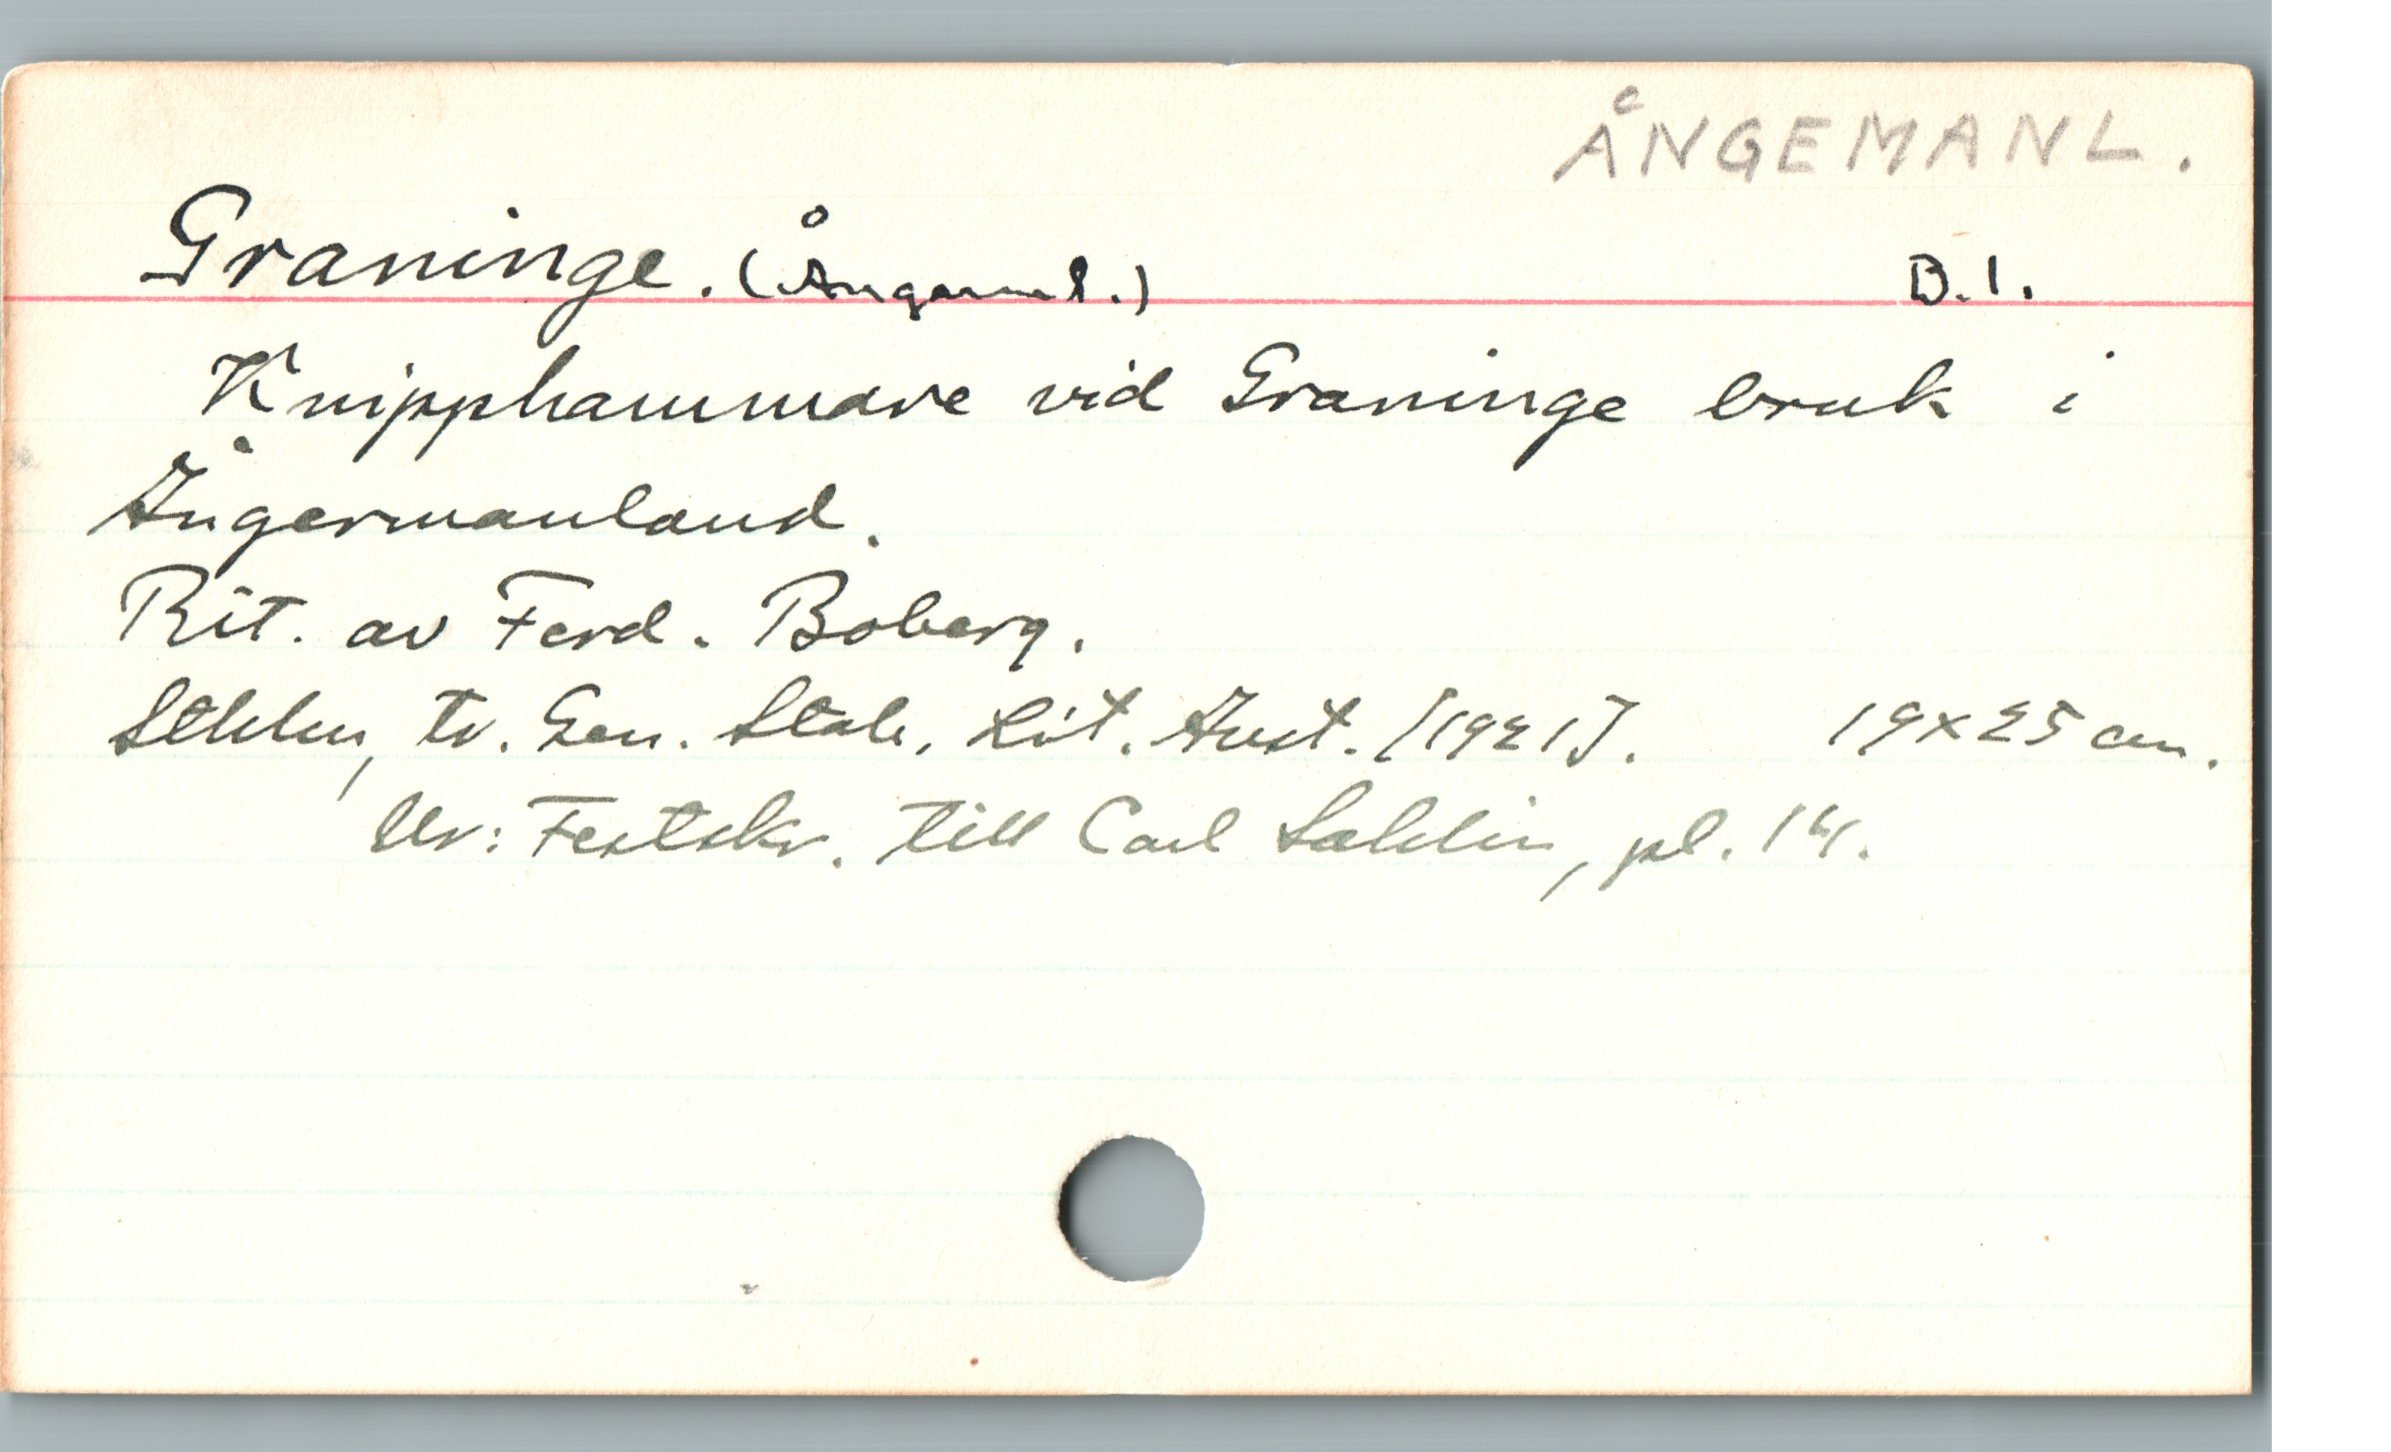 ÅNGEMANL.
Graninge. (Ångerml.) B.1.
Knipphammare vid Graninge bruk i
Ångermanland.
Rit. av Ferd. Boberg.
Sthlm, tr. Gen. Stab. Lit. Anst. [1921]. 19x25 cm.
Ur: Festskr. till Carl Sahlin, pl. 14.